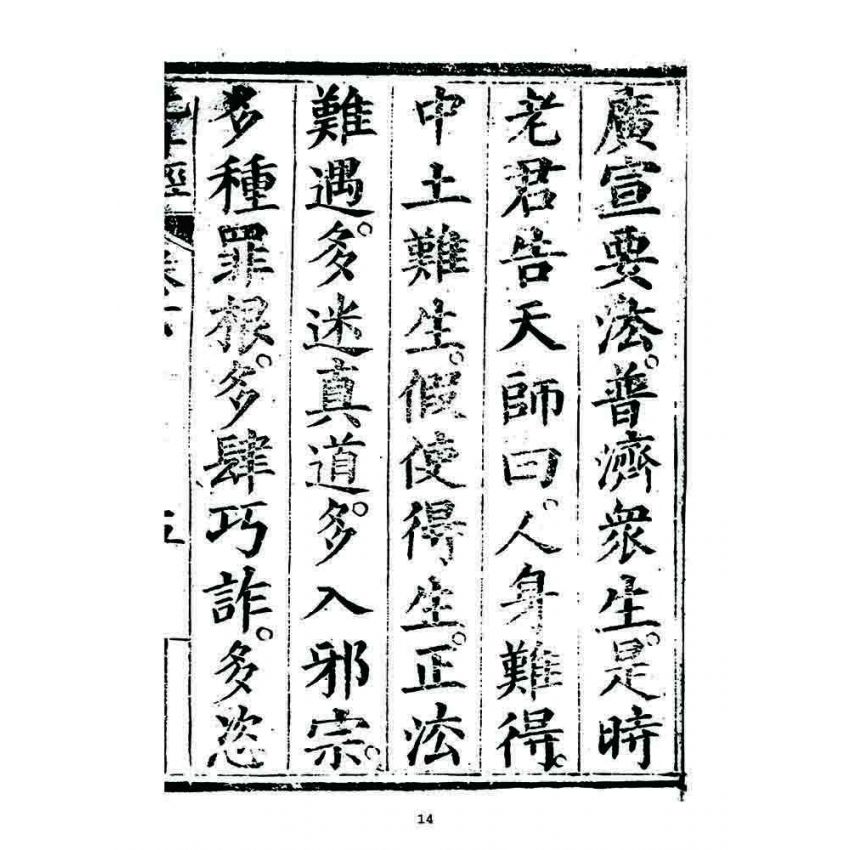 廣宣要法。普濟衆生。是時
老君告天師曰。人身難得。
中土難生。假使得生。正法
難遇。多迷真道。多入邪宗。
多種罪根。多肆巧詐。多恣
14